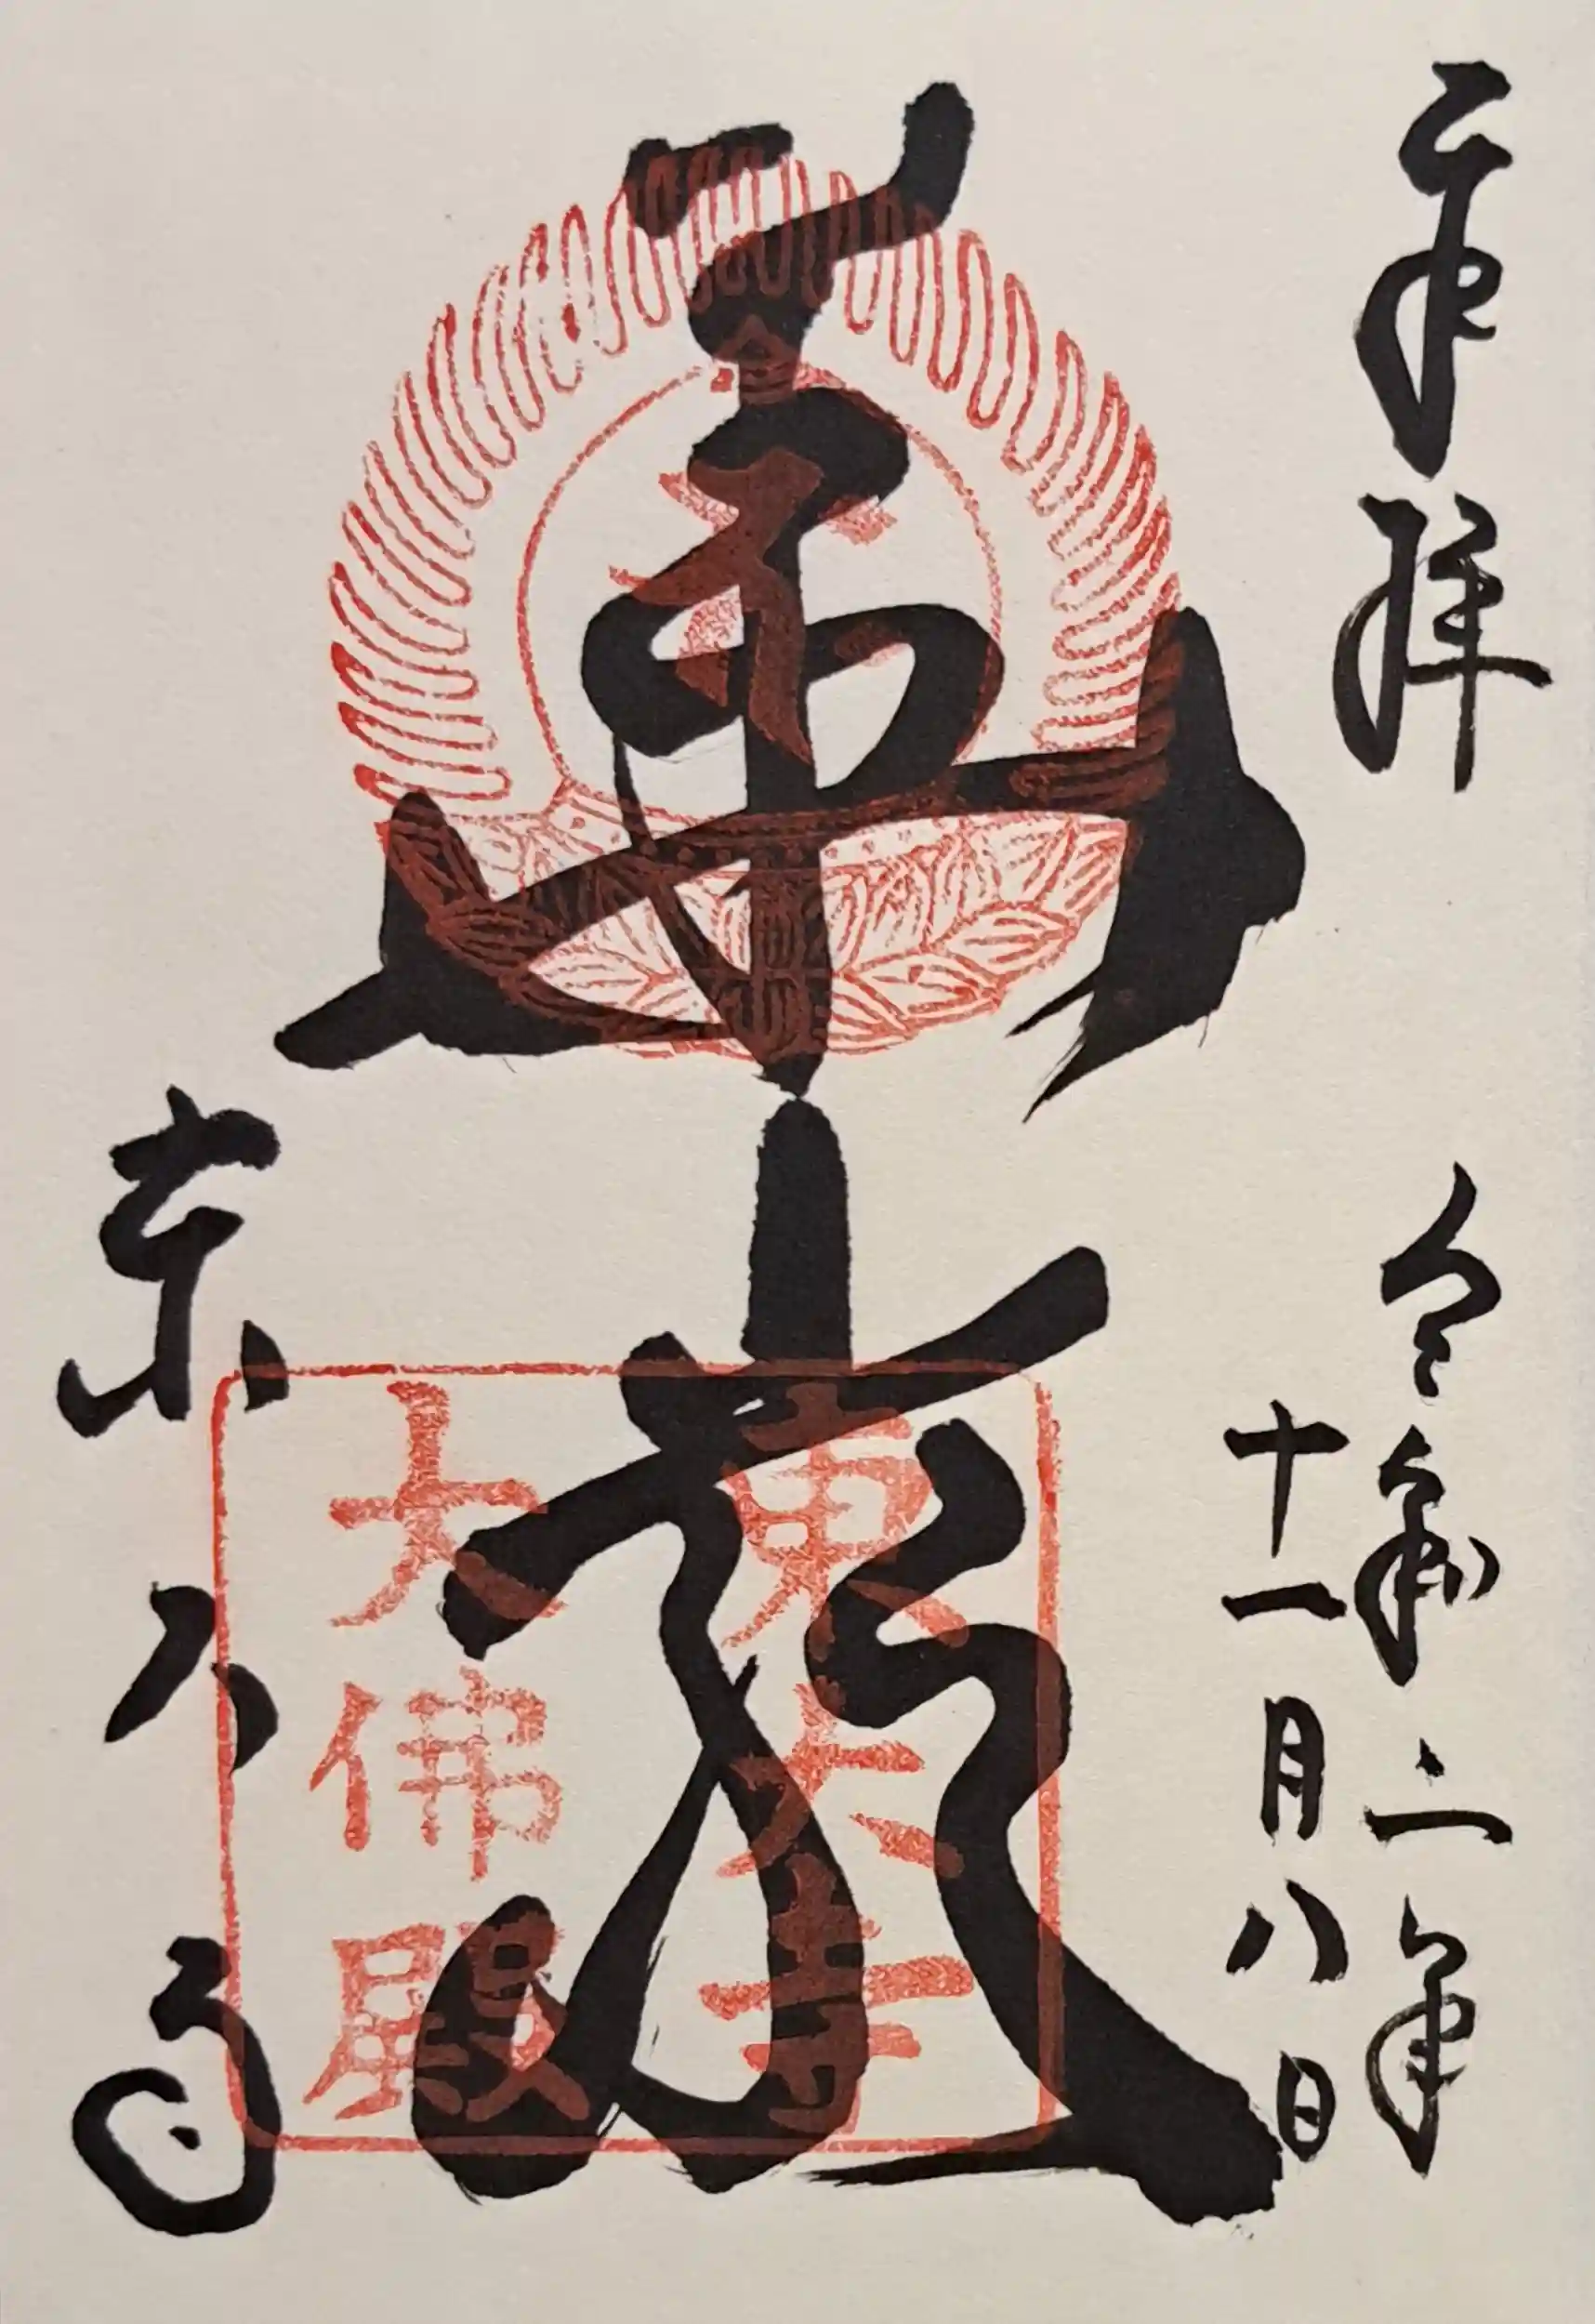 奉拝
令和二年
十一月八日
華嚴
東大寺
東大寺
大佛殿